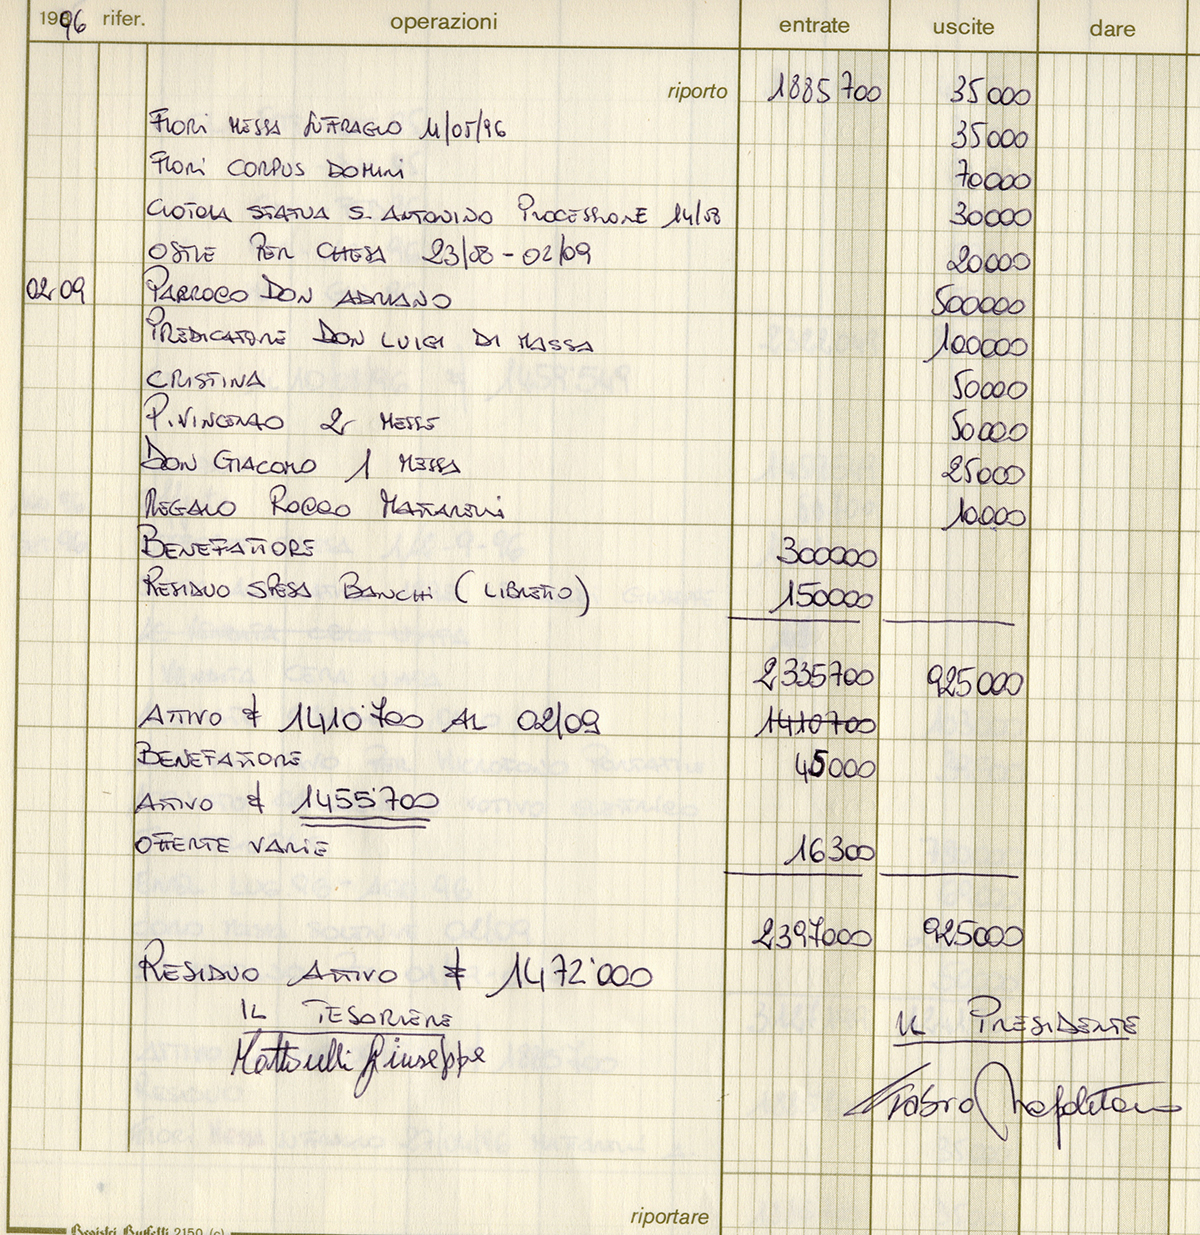 1996 rifer. operazioni entrate uscite dare
riporto 1885700 35000
FIORI MESSA SUFFRAGIO 11/05/96 35000
FIORI CORPUS DOMINI 70000
CIOTOLA STATUA S. ANTONINO PROCESSIONE 14/08 30000
OSTIE PER CHIESA 23/08 - 02/09 20000
02 09 PARROCO DON ADRIANO 500000
PREDICATORE DON LUIGI DI MASSA 100000
CRISTINA 50000
P. VINCENZO 2 MESSE 50000
DON GIACOMO 1 MESSA 25000
REGALO ROCCO 10000
BENEFATTORE 300000
RESIDUO SPESA BANCHI (LIBRETTO) 150000
2335700 925000
ATTIVO £ 1410'700 AL 02/09 1410700
BENEFATTORE 45000
ATTIVO £ 1455'700
OFFERTE VARIE 16300
2397000 925000
RESIDUO ATTIVO £ 1472'000
IL TESORIERE IL PRESIDENTE
Giuseppe Napoletano
riportare
2150 (c)